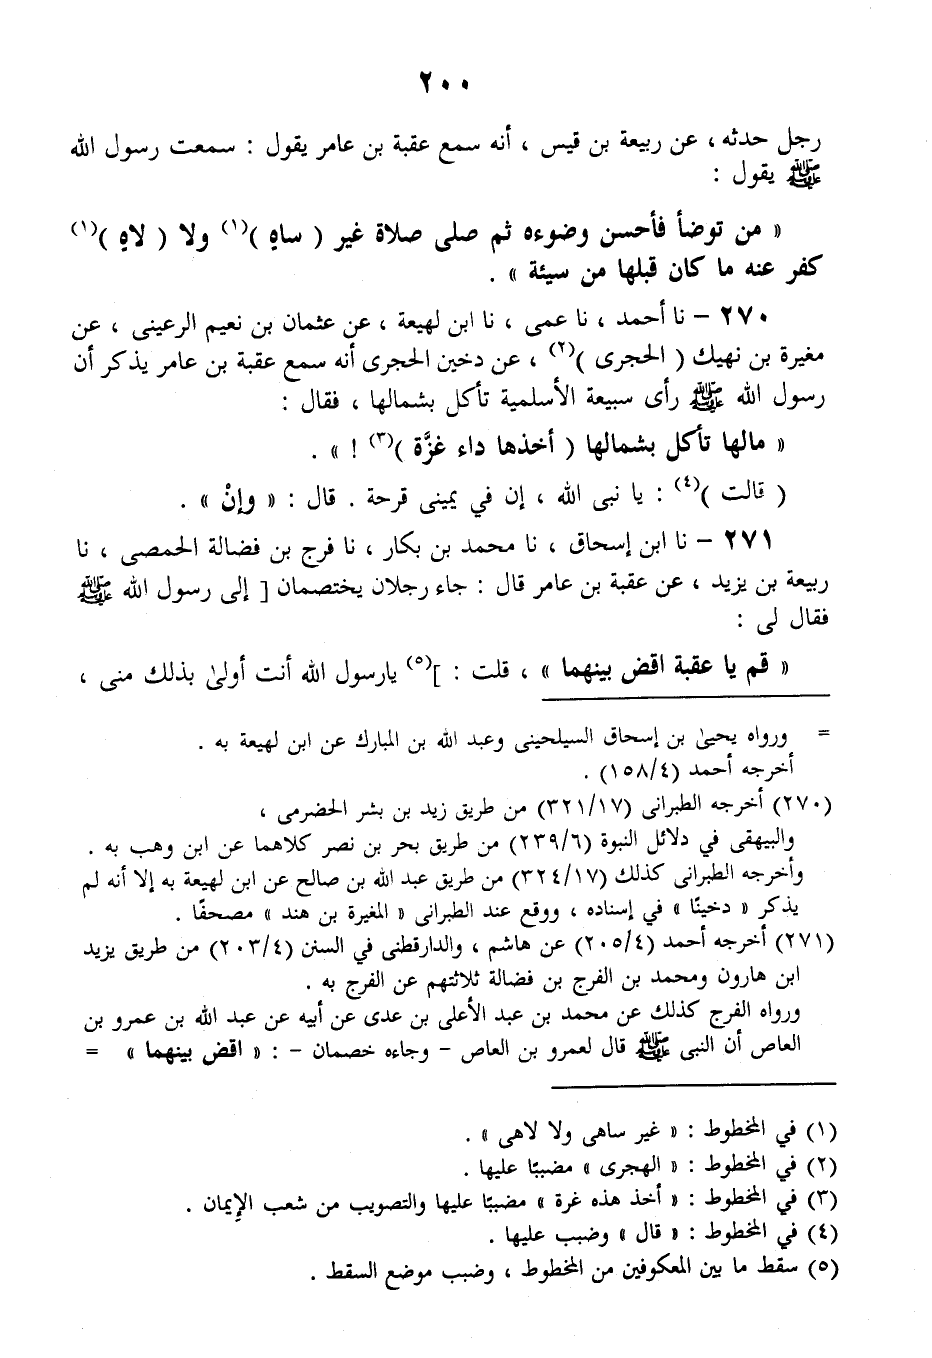 ٢٠٠
رجل حدثه ، عن ربيعة بن قيس ، أنه سمع عقبة بن عامر يقول : سمعت رسول الله
ﷺ يقول :
« من توضأ فأحسن وضوءه ثم صلى صلاة غير ( ساهٍ )(١) ولا ( لاهٍ )(١)
كفر عنه ما كان قبلها من سيئة » .
٢٧٠ – نا أحمد ، نا عمى ، نا ابن لهيعة ، عن عثمان بن نعيم الرعينى ، عن
مغيرة بن نهيك ( الحجرى )(٢) ، عن دخين الحجرى أنه سمع عقبة بن عامر يذكر أن
رسول الله ﷺ رأى سبيعة الأسلمية تأكل بشمالها ، فقال :
« مالها تأكل بشمالها ( أخذها داء غزَّة )(٣) ! » .
( قالت )(٤) : يا نبى الله ، إن في يمينى قرحة . قال : « وإنْ » .
٢٧١ – نا ابن إسحاق ، نا محمد بن بكار ، نا فرج بن فضالة الحمصي ، نا
ربيعة بن يزيد ، عن عقبة بن عامر قال : جاء رجلان يختصمان [ إلى رسول الله ﷺ
فقال لى :
« قم يا عقبة اقض بينهما » ، قلت : ](٥) يارسول الله أنت أولىٰ بذلك منى ،
= ورواه يحيىٰ بن إسحاق السيلحينى وعبد الله بن المبارك عن ابن لهيعة به .
أخرجه أحمد (١٥٨/٤) .
(٢٧٠) أخرجه الطبرانى (٣٢١/١٧) من طريق زيد بن بشر الحضرمى ،
والبيهقى في دلائل النبوة (٢٣٩/٦) من طريق بحر بن نصر كلاهما عن ابن وهب به .
وأخرجه الطبرانى كذلك (٣٢٤/١٧) من طريق عبد الله بن صالح عن ابن لهيعة به إلا أنه لم
يذكر « دخينًا » في إسناده ، ووقع عند الطبرانى « المغيرة بن هند » مصحفًا .
(٢٧١) أخرجه أحمد (٢٠٥/٤) عن هاشم ، والدارقطنى في السنن (٢٠٣/٤) من طريق يزيد
ابن هارون ومحمد بن الفرج بن فضالة ثلاثتهم عن الفرج به .
ورواه الفرج كذلك عن محمد بن عبد الأعلى بن عدى عن أبيه عن عبد الله بن عمرو بن
العاص أن النبى ﷺ قال لعمرو بن العاص – وجاءه خصمان – : « اقض بينهما » =
(١) في المخطوط : « غير ساهى ولا لاهى » .
(٢) في المخطوط : « الهجرى » مضببًا عليها .
(٣) في المخطوط : « أخذ هذه غرة » مضببًا عليها والتصويب من شعب الإيمان .
(٤) في المخطوط : « قال » وضبب عليها .
(٥) سقط ما بين المعكوفين من المخطوط ، وضبب موضع السقط .